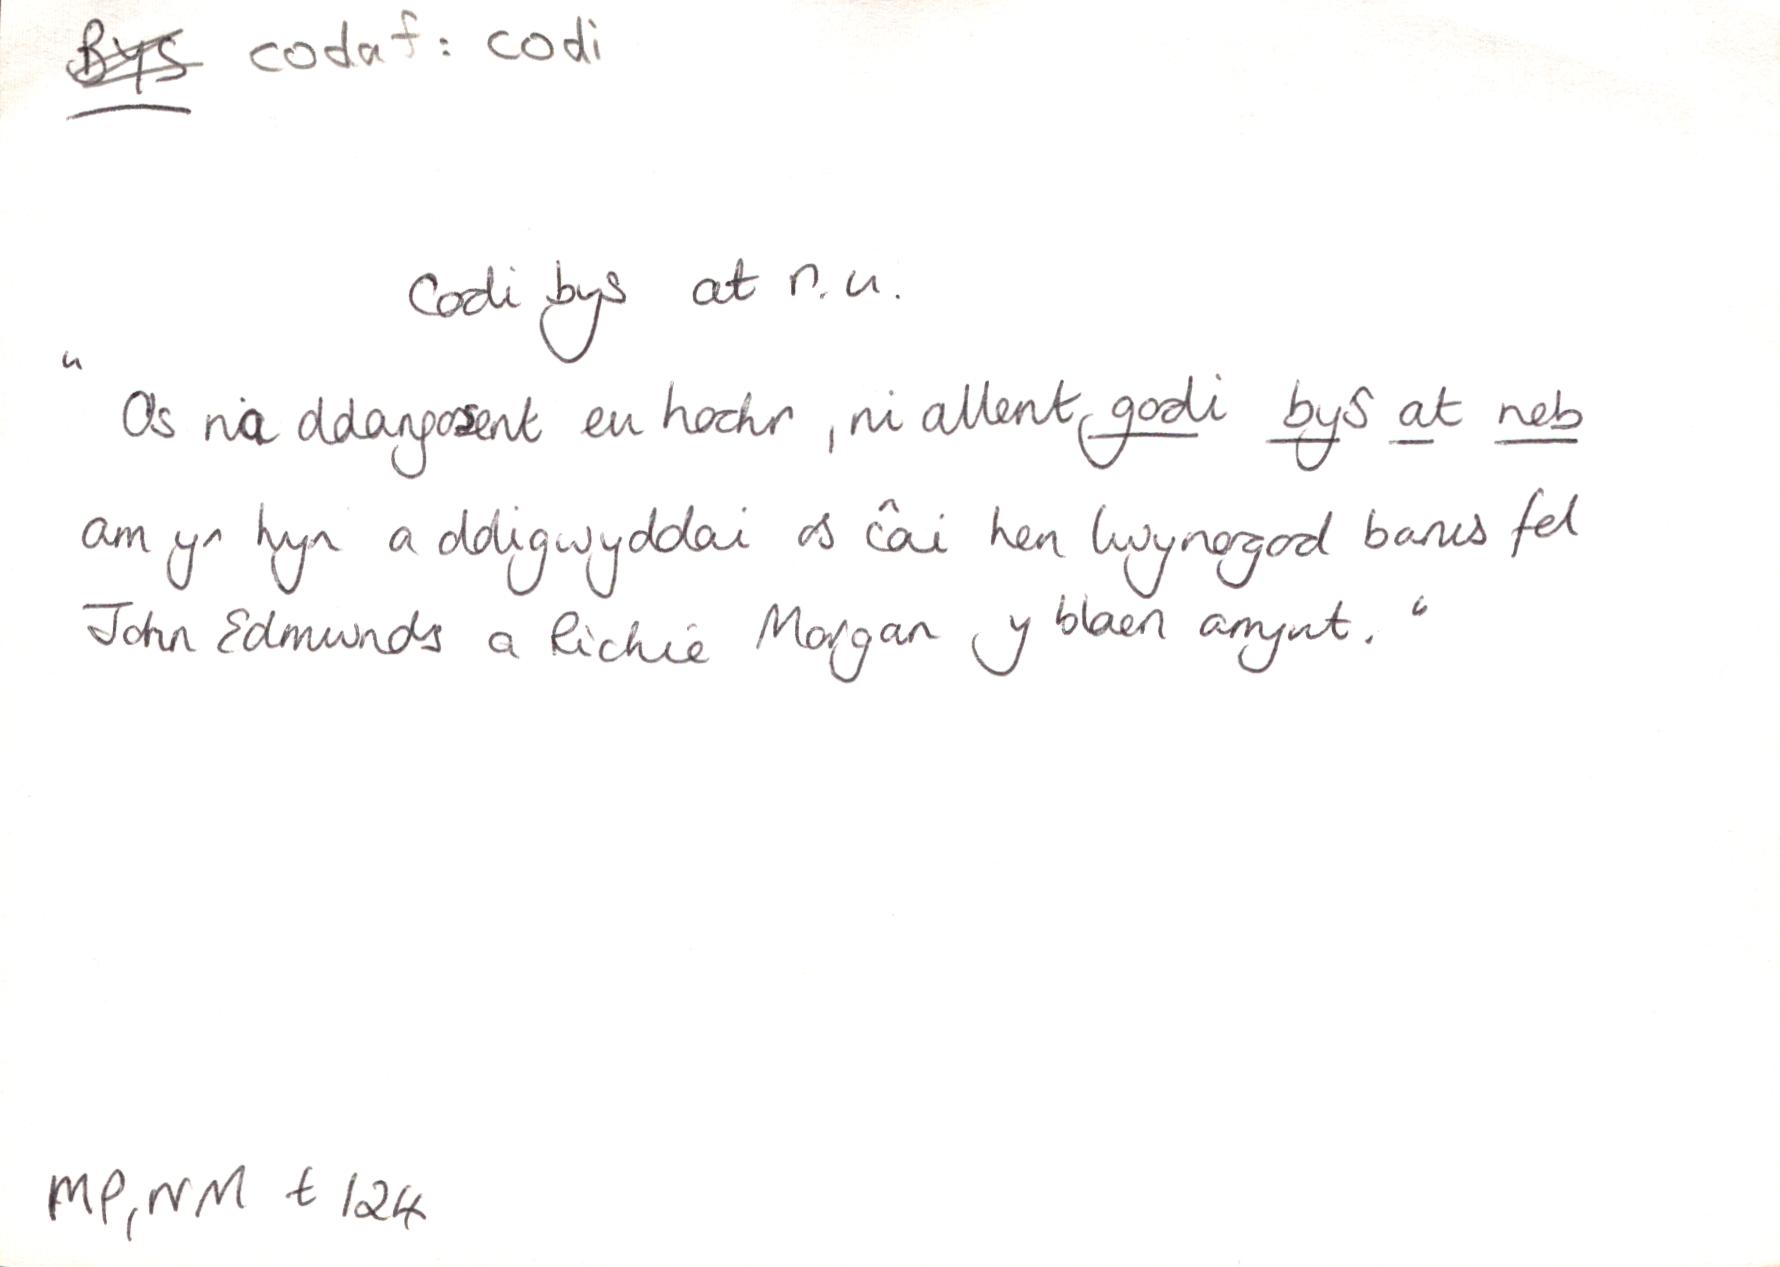 Bys codaf: codi
Codi bys at r.u.
"Os na ddangosent eu hochr, ni allent godi bys at neb
am yr hyn a ddigwyddai os câi hen lwynogod barus fel
John Edmunds a Richie Morgan y blaen arnynt."
MP, NM t 124